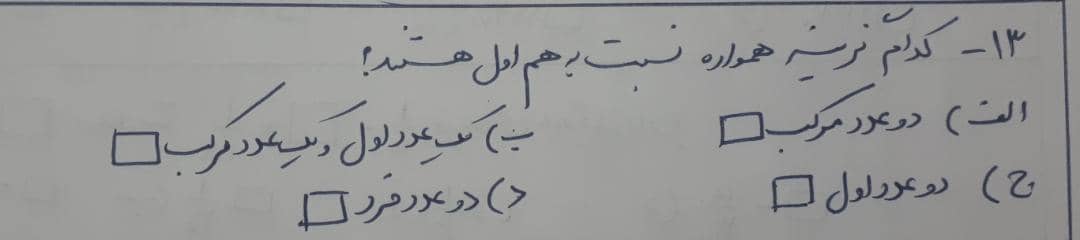 ۱۳- کدام گزینه همواره نسبت به هم اول هستند؟
الف) دو عدد مرکب □ ب) یک عدد اول و یک عدد مرکب □
ج) دو عدد اول □ د) دو عدد فرد □